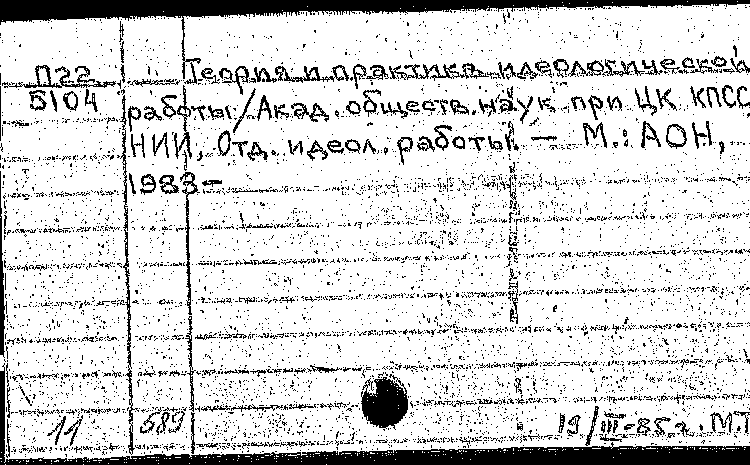 П22
5104
Теория и практика идеологической
работы / Акад. обществ. наук при ЦК КПСС
НИИ, Отд. идеол. работы. — М.: АОН,
1983-
11
589
19/III-85г. М.Т